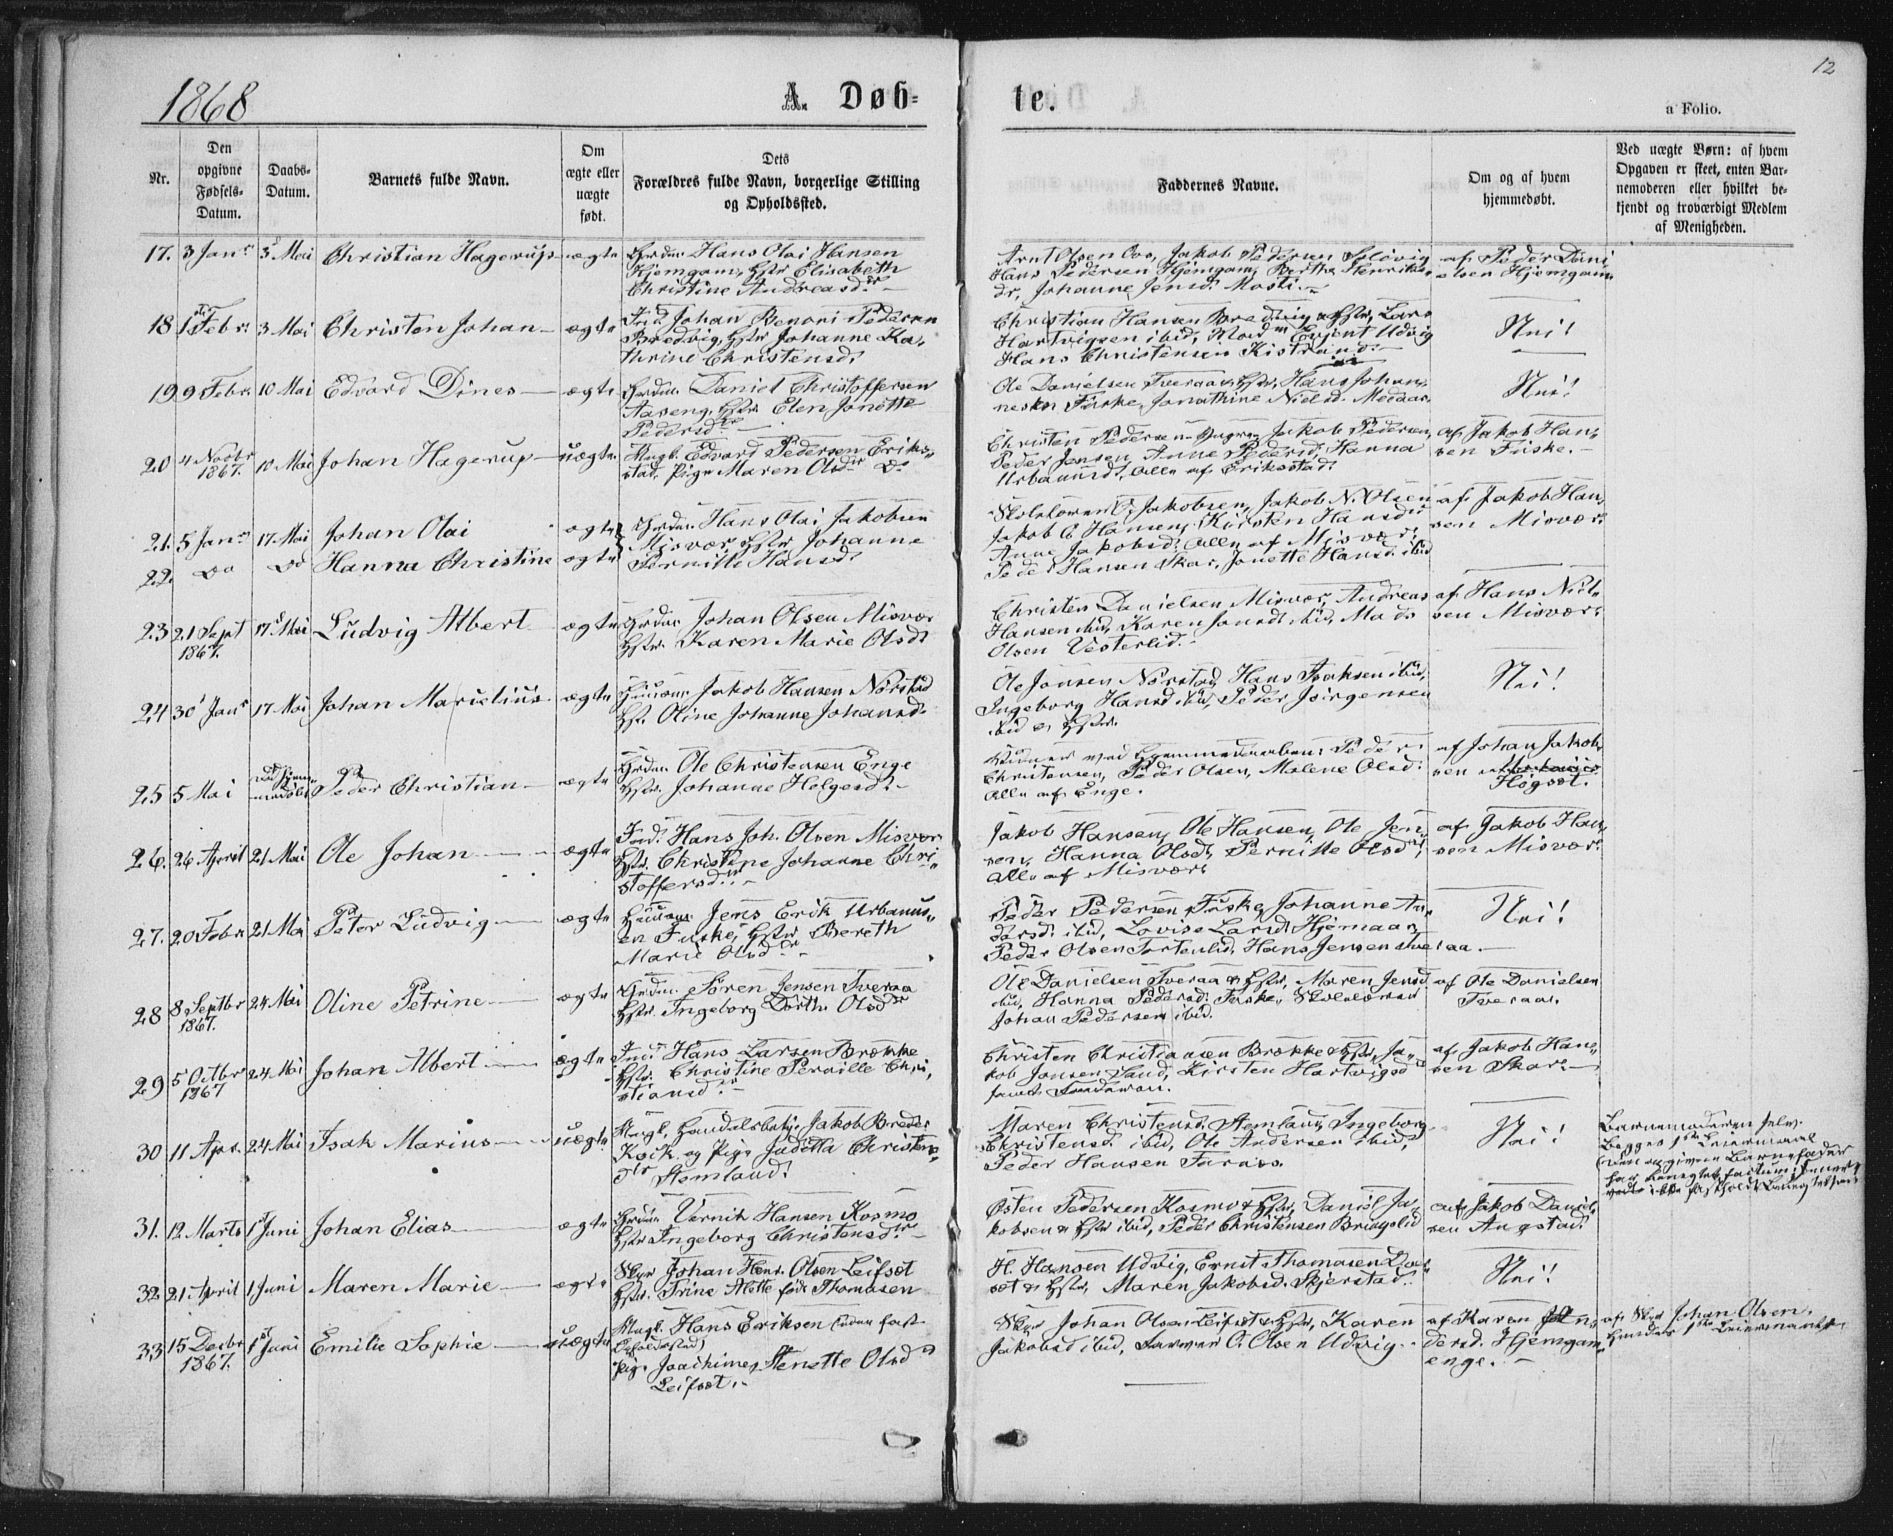 12
1868 A. Døb- te. a Folio.
Nr.
Den opgivne Fødsels-Datum.
Daabs-Datum.
Barnets fulde Navn.
Om ægte eller uægte født.
Dets Forældres fulde Navn, borgerlige Stilling og Opholdssted.
Faddernes Navne.
Om og af hvem hjemmedøbt.
Ved uægte Børn: af hvem Opgaven er skeet, enten Barnemoderen eller hvilket bekjendt og troværdigt Medlem af Menigheden.
17. 3 Janr 3 Mai Christian Hagerup ægte Hans Olai Hansen
Hjemgam, Elisabeth
Christine Andreasdr
Arnt Olsen Oos, Jakob Pedersen Solvig
Hans Pedersen Hjemgam, Berthe Henriks-
dr, Johanne Jensd. Mosti
af Peder Dani
elsen Hjemgam
18 1 Febr. 3 Mai Christen Johan ægte Johan Benoni Pedersen
Bredvig, Johanne Ka-
thrine Christensd.
Christian Hansen Bredvig, Lars
Hartvigsen ibid, Evjent Udvig
Hans Christensen Kistrand
Nei!
19 9 Febr. 10 Mai Edvard Dines ægte Daniel Christoffersen
Aaseng, Elen Jonette
Pedersdr
Ole Danielsen Tveraa, Hans Johan-
nesen Fuske, Jonathine Nielsd. Medaas
Nei!
20 4 Novbr 1867. 10 Mai Johan Hagerup uægte Edvard Pedersen Erik-
stad, Pige Maren Olsdr Do
Christen Pedersen, Jakob Pedersen,
Peder Jensen, Anne Pedersd, Hanna
Urbanusd. alle af Erikstad
af Jakob Han-
sen Fuske.
21. 5 Janr 17 Mai Johan Olai ægte Hans Olai Jakobsen
22. Do Do Hanna Christine ægte Misvær, Johanne
Pernille Hansd.
Jakobsen, Jakob N. Olsen
Jakob O Hansen, Kirsten Hansd
Anne Jakobsd. alle af Misvær,
Peder Hansen Skar, Jonette Hansd. ibid
af Jakob Han-
sen Misvær.
23 21 Sept 1867. 17 Mai Ludvig Albert ægte Johan Olsen Misvær
Karen Marie Olsd.
Christen Danielsen Misvær, Andreas
Hansen ibid, Karen Jonsd. ibid, Mads
Olsen Vesterlid.
af Hans Niel-
sen Misvær.
24 30 Janr 17 Mai Johan Marielius ægte Jakob Hansen Norstad
Oline Johanne Johansd.
Ole Jonsen Norstad, Hans Isaksen ibid,
Ingeborg Hansd. ibid, Peder Jørgensen
ibid
Nei!
25 5 Mai Peder Christian ægte Ole Christensen Enge
Johanne Helgesd.
Peder
Christensen, Peder Olsen, Malene Olsd.
alle af Enge.
af Johan Jakob-
sen
Høgset.
26. 26 April 21 Mai Ole Johan ægte Hans Joh. Olsen Misvær
Christine Johanne Chri-
stoffersdr.
Jakob Hansen, Ole Hansen, Ole Jen-
sen, Hanna Olsd, Pernille Olsd,
alle af Misvær
af Jakob Han-
sen Misvær.
27. 20 Febr 21 Mai Peter Ludvig ægte Jens Erik Urbanus-
en Fuske, Bereth
Marie Olsdr
Peder Pedersen Fuske, Johanne An-
dersd. ibid, Lovise Larsd. Hjemaas
Peder Olsen Tortenlid, Hans Jensen Tveraa.
Nei!
28 8 Septbr 1867. 24 Mai Oline Petrine ægte Søren Jensen Tveraa
Ingeborg Dorth. Olsdr
Ole Danielsen Tveraa, Maren Jensd
ibid, Hanna Pedersd. Fuske,
Johan Pedersen ibid.
af Ole Danielsen
Tveraa.
29 5 Octbr 1867 24 Mai Johan Albert ægte Hans Larsen Brække
Christine Pernille Chri-
stiansd.
Christen Christiansen Brække, Ja-
kob Jonsen Sand, Kirsten Hartvigsd
af Jakob Han-
sen Skar.
30 11 Apr. 24 Mai Isak Marius uægte Jakob Breder
Koik og Pige Juditta Christens-
dr Stemland.
Maren Christensd. Stemland, Ingeborg
Christensd. ibid, Ole Andersen ibid,
Peder Hansen Turnes.
Nei!
Barnemoderen selv.
Begges 1ste Leiermaal
31. 12 Marts 1 Juni Johan Elias ægte Hansen Kosmo
Ingeborg Christensdr
Østen Pedersen Kosmo, Daniel Ja-
kobsen ibid, Peder Christensen Bringslid
af Jakob Daniel-
sen Angstad.
32 21 April 1 Juni Maren Marie ægte Johan Henr. Olsen Leifset
Trine Alette født Thomasen
H. Hansen Udvig, Ernst Thomasen
Maren Jakobsd. Skjerstad.
Nei!
33 15 Decbr 1867. 1 Juni Emilie Sophie uægte Hans Eriksen uden fast
Opholdssted,
Pige Joachime Stenette Olsd
Leifset.
Johan Olsen Leifset, Karen
Jakobsd ibid, O. Olsen Udvig.
af Karen An-
dersd. Hjemgam-
enge.
af Johan Olsen.
Leiermaal